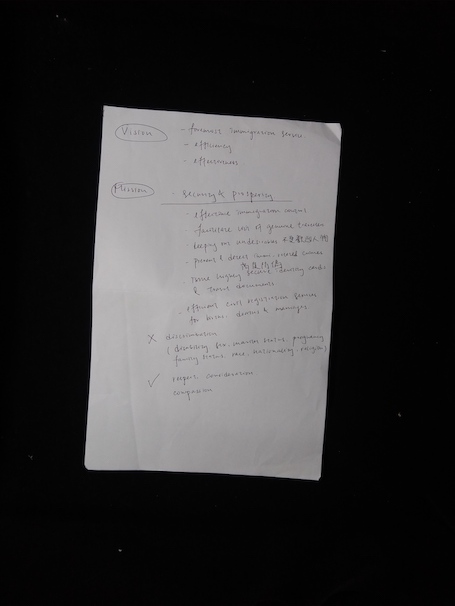 Vision - foremost immigration service.
- efficiency
- effectiveness
Mission - security & prosperity
- effective immigration control
- facilitate visit of genuine travellers
keeping out undesirables 不受歡迎人物
- prevent & detect imm. related crimes
issue highly secure identity cards
& travel documents
- efficient civil registration service
for births, deaths & marriages
X discrimination
( disability, sex, marital status, pregnancy
family status, race, nationality, religion)
✓ respect, consideration
compassion